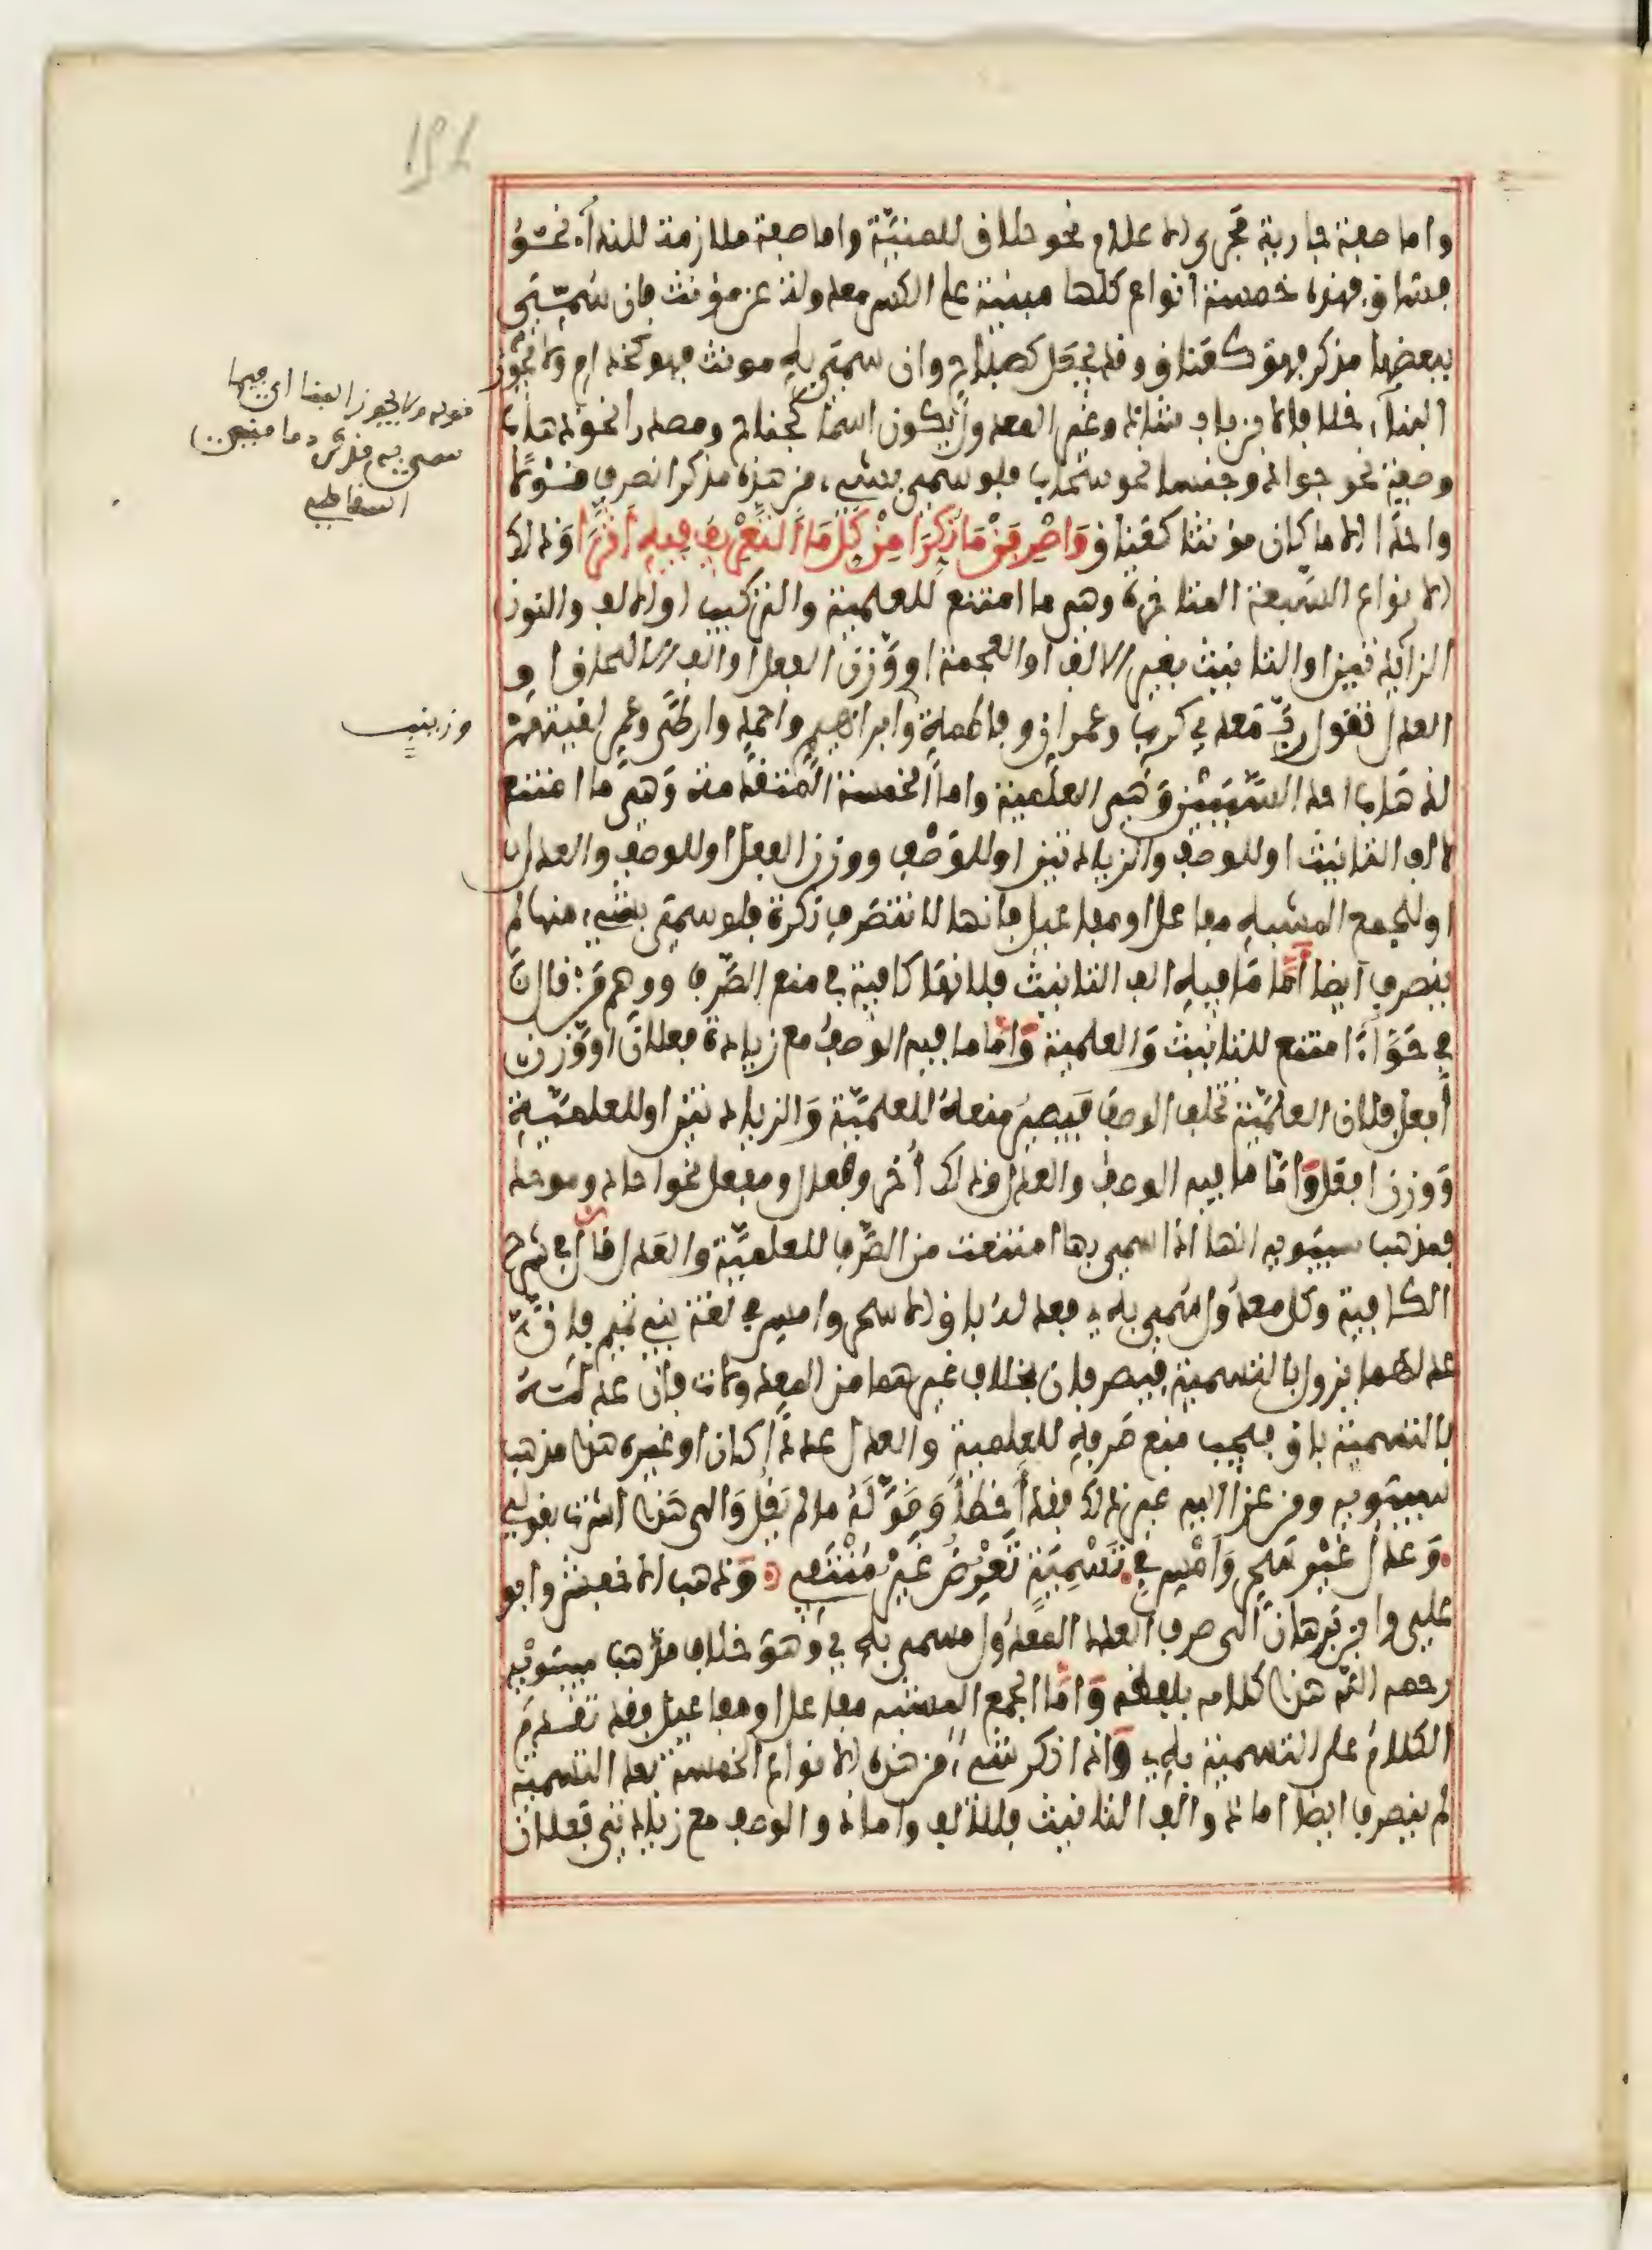 واما صفة جارية مجرى الاعلام نحو حلاق للمنية واما صفة ملازمة للنداء نحو
فساق فهذه خمسة انواع كلها مبنية على الكسر معدولة عن مؤنث فان سمي
ببعضها مذكر فهو كعناق وقد يجعل كصباح وان سمي به مونث فهو كحذام ولا يجوز
البناء خلافا لابن بابشاذ وغير المعدول يكون اسما كجناح ومصدرا نحو ذهاب
وصفة نحو جواد وجنسا نحو سحاب فلو سمي بشيء من هذه مذكر انصرف قولا
واحدا الا ما كان مؤنثا كعناق واصرفن ما نكرا من كل ما التعريف فيه اثرا وذلك
الانواع السبعة المتاخرة وهي ما امتنع للعلمية والتركيب او الالف والنون
الزائدتين او التانيث بغير الالف او العجمة او وزن الفعل او الف الالحاق او
العدل تقول رب معدي كرب وعمران وفاطمة وابراهيم واحمد وارطى وعمر لقيتهم
لذهاب احد السببين وهي العلمية واما الخمسة المتقدمة وهي ما امتنع
لالف التانيث او للوصف والزيادتين او للوصف ووزن الفعل او للوصف والعدل
او للجمع المشبه مفاعل او مفاعيل فانها لا تنصرف نكرة فلو سمي بشيء منها لم
ينصرف ايضا اما ما فيه الف التانيث فلانها كافية في منع الصرف ووهم من قال
في حواء امتنع للتانيث والعلمية واما ما فيه الوصف مع زيادة فعلان او وزن
أفعل فلان العلمية تخلف الوصف فيصير منعه للعلمية والزيادتين او للعلمية
ووزن افعل واما ما فيه الوصف والعدل وذلك أخر وفعال ومفعل نحو احاد وموحد
فمذهب سيبويه انها اذا سمي بها امتنعت من الصرف للعلمية والعدل قال في شرح
الكافية وكل معدول سمي به فعدله باق الا سحر وامس في لغة بني تميم فان
عدلهما يزول بالتسمية فيصرفان بخلاف غيرهما من المعدولات فان عدله
بالتسمية باق فيجب منع صرفه للعلمية والعدل عددا كان او غيره هذا مذهب
سيبويه ومن عزا اليه غير ذلك فقد أخطأ وقوله ما لم يقل والى هذا اشرت بقولي
وعدل غير سحر وامس في تسمية تعرض غير منتفي وذهب الاخفش وابو
علي وابن برهان الى صرف العدد المعدول مسمى به وهو خلاف مذهب سيبويه
رحمه الله هذا كلامه بلفظه واما الجمع المشبه مفاعل او مفاعيل فقد تقدم
الكلام على التسمية به واذا نكر شيء من هذه الانواع الخمسة بعد التسمية
لم ينصرف ايضا اما ذو الف التانيث فللالف واما ذو الوصف مع زيادتي فعلان
قوله ولا يجوز البنا اي فيما
سمي به
وزينب